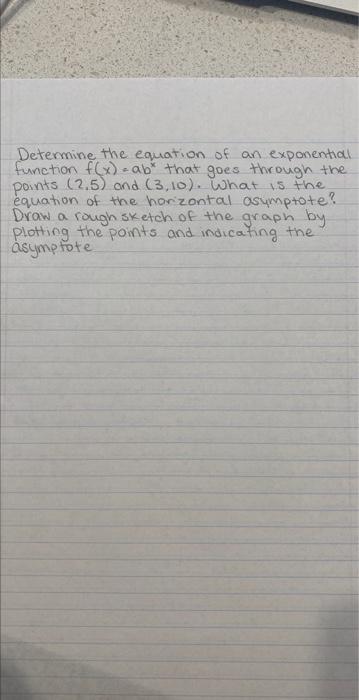 Determine the equation of an exponential
function f(x) = abˣ that goes through the
points (2,5) and (3,10). What is the
equation of the horizontal asymptote?
Draw a rough sketch of the graph by
plotting the points and indicating the
asymptote